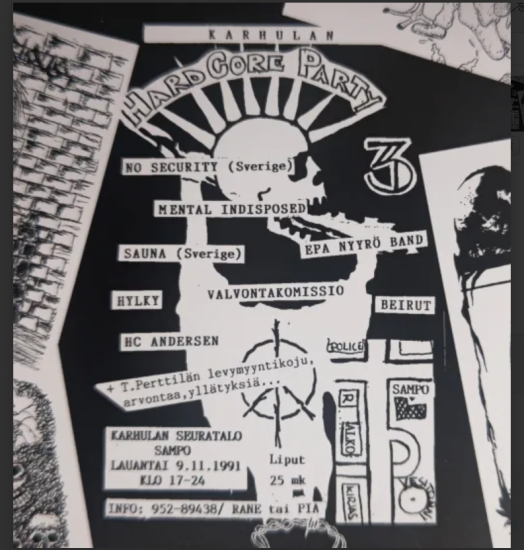 KARHULAN
HARDCORE PARTY
3
NO SECURITY (Sverige)
MENTAL INDISPOSED
SAUNA (Sverige)
EPA NYYRÖ BAND
HYLKY
VALVONTAKOMISSIO
BEIRUT
HC ANDERSEN
+ T.Perttilän levymyyntikoju,
arvontaa,yllätyksiä...
POLICE
SAMPO
R
ALKO
KIRJAS
KARHULAN SEURATALO
SAMPO
LAUANTAI 9.11.1991
KLO 17-24
Liput
25 mk
INFO: 952-89438/ RANE tai PIA